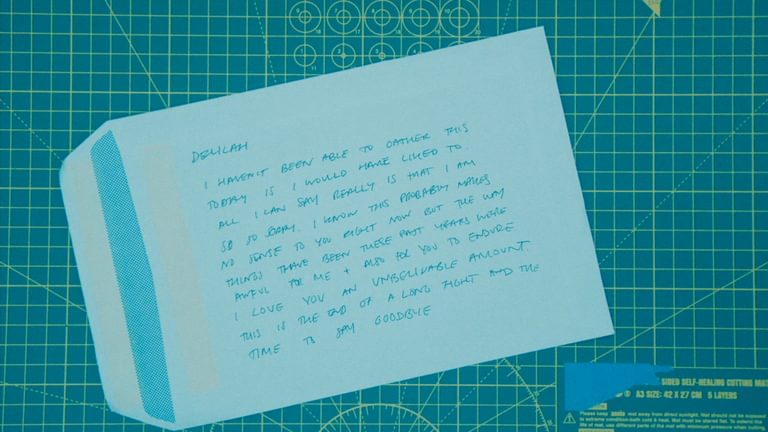 DELILAH
I HAVEN'T BEEN ABLE TO GATHER THIS
TODAY IS I WOULD HAVE LIKED TO.
ALL I CAN SAY REALLY IS THAT I AM
SO SO SORRY. I KNOW THIS PROBABLY MAKES
NO SENSE TO YOU RIGHT NOW BUT THE WAY
THINGS HAVE BEEN THESE PAST YEARS WERE
AWFUL FOR ME + ALSO FOR YOU TO ENDURE
I LOVE YOU AN UNBELIVABLE AMOUNT.
THIS IS THE END OF A LONG FIGHT AND THE
TIME TO SAY GOODBYE
SIDED SELF-HEALING CUTTING MAT
A3 SIZE: 42 X 27 CM 5 LAYERS
Please keep away from direct sunlight. Mat should not be exposed
to extreme condition-bath cold & heat. Mat must be stored flat. To extend the
life of mat, use different parts of the mat with minimum pressure when cutting.